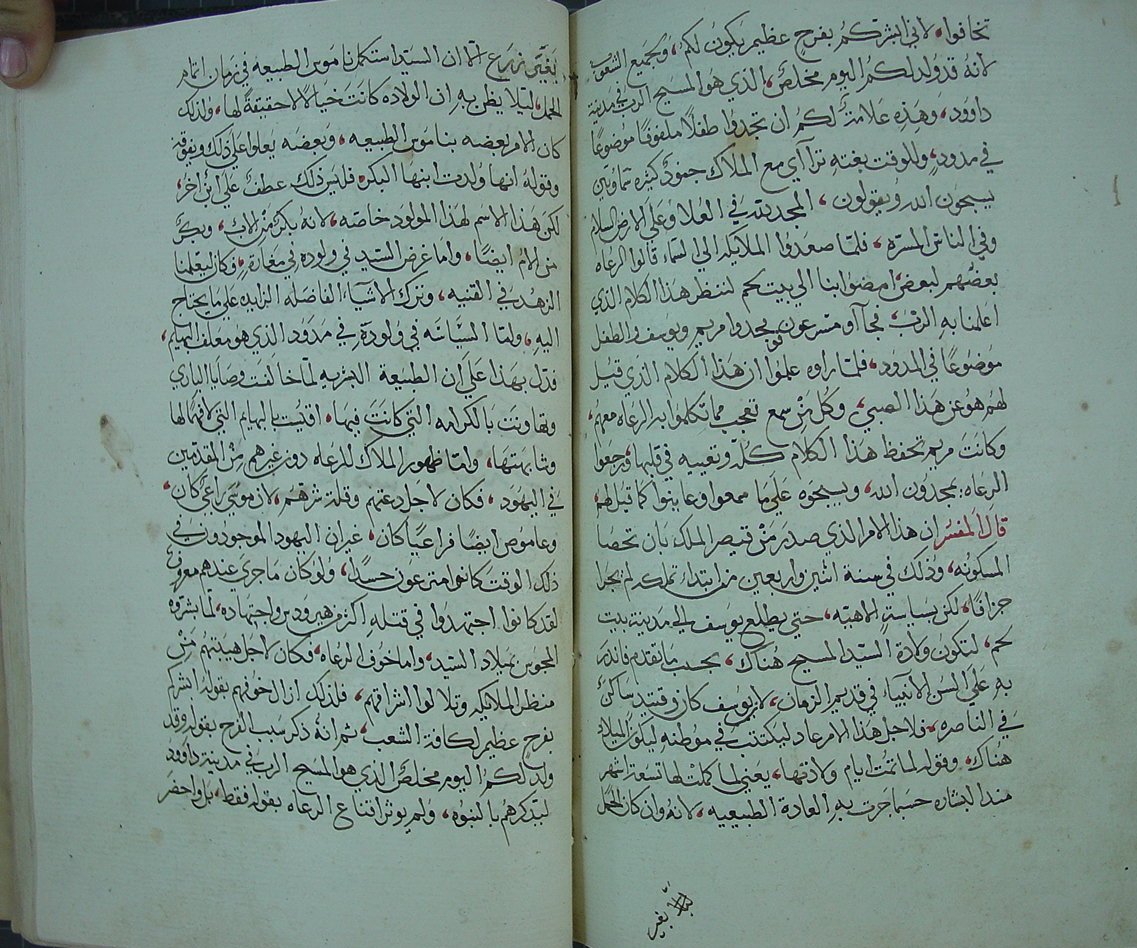 تخافوا، لاني ابشركم بفرح عظيم يكون لكم، ولجميع الشعوب
لانه قد ولد لكم اليوم مخلص، الذي هو المسيح الرب في مدينة
داوود، وهذه علامة لكم ان تجدوا طفلا ملفوفا موضوعا
في مدود، وللوقت بغته تراآي مع الملاك جنود كثيره سماويين
يسبحون الله ويقولون، المجد لله في العلا وعلى الارض السلام
وفي الناس المسره، فلما صعدوا الملايكه الي السماء قالوا الرعاه
بعضهم لبعض، امضوا بنا الي بيت لحم لننظر هذا الكلام الذي
اعلمنا به الرب، فجآاو مسرعين فوجدوا مريم ويوسف والطفل
موضوعا في المدود، فلما راوه علموا ان هذا الكلام الذي قيل
لهم هو عن هذا الصبي، وكل من سمع تعجب مما تكلموا به الرعاه معهم،
وكانت مريم تحفظ هذا الكلام كله وتعييه في قلبها، ورجعوا
الرعاه يمجدون الله، ويسبحوه على ما سمعوا وعاينوا كما قيل لهم
قال المفسر ان هذا الامر الذي صدر من قيصر الملك بان تحصا
المسكونه، وذلك في سنة اثنين واربعين من ابتداء تملكه لم يجرا
جزافا، لكن بسياسة الاهيه، حتي يطلع يوسف الي مدينة بيت
لحم، لتكون ولادة السيد المسيح هناك، بحسب ما تقدم فانذر
به على السن الانبياء في قديم الزمان، لان يوسف كان وقتيد ساكن
في الناصره، فلاجل هذا الامر عاد ليكتتب في موطنه ليكون الميلاد
هناك، وقوله لما تمت ايام ولادتها، يعني لما كملت لها تسعة اشهر
مند البشاره حسبما جرت به العادة الطبيعيه، لانه وان كان الحمل
بغير
بغير زرع الا ان السيد استكمل ناموس الطبيعه في زمان اتمام
الحمل، ليلا يظن به ان الولاده كانت خيالا لا حقيقة لها، ولذلك
كان الامر بعضه بناموس الطبيعه، وبعضه يعلوا على ذلك ويفوقه
وقوله انها ولدت ابنها البكر، فليس ذلك عطف على ابن اخر،
لكن هذا الاسم لهذا المولود خاصه، لانه بكر من الاب، وبكر
من الام ايضا، واما غرض السيد في ولوده في مغاره، فكان ليعلمنا
الزهد في القنيه، وترك الاشياء الفاضله الزايده على ما يحتاج
اليه، ولما السياسه في ولودة في مدود الذي هو معلف البهايم،
فدل بهذا على ان الطبيعة البشريه لما خالفت وصايا الباري
وتهاونت بالكرامه التي كانت فيها، اقتيت بالبهايم التي لا فهم لها
وتشابهتها، ولما ظهور الملاك للرعاه دون غيرهم من المقدمين
في اليهود، فكان لاجل دعتهم وقلة شرهم، لان موسي راعي كان،
وعاموص ايضا فراعيا كان، غير ان اليهود الموجودون في
ذلك الوقت كانوا متزعون حسدا، ولو كان ما جري عندهم معروف
لقد كانوا اجتهدوا في قتله اكثر من هيرودس واجتهاده، لما بشروه
المجوس بميلاد السيد، واما خوف الرعاه، فكان لاجل هيبتهم من
منظر الملايكه وتلالوا اشراقهم، فلذلك ازال خوفهم بقوله ابشركم
بفرح عظيم لكافة الشعب، ثم انه ذكر سبب الفرح بقوله وقد
ولد لكم اليوم مخلص الذي هو المسيح الرب في مدينة داوود
ليذكرهم بالنبوه، ولم يوثر اقناع الرعاه بقوله فقط، بل واحضر